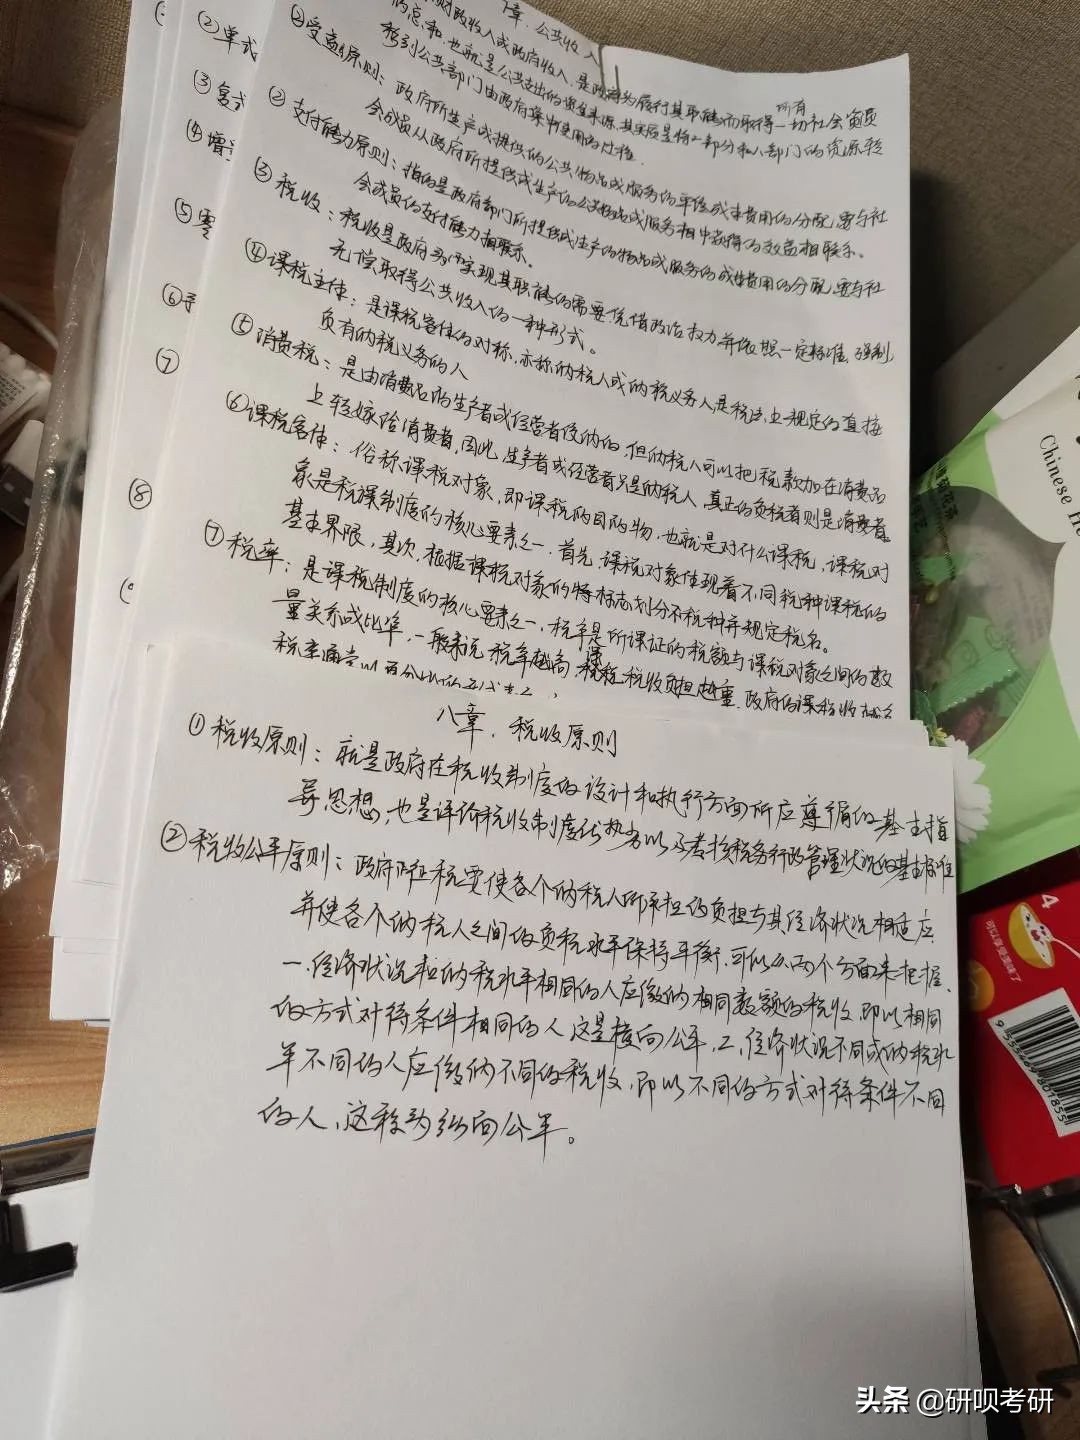 7章、公共收入
财政收入或政府收入,是政府为履行其职能而取得
所有
一切社会资源
的总和,也就是公共支出的资金来源,其实质是将一部分私人部门的资源转
移到公共部门由政府集中使用的过程.
②受益原则:政府所生产或提供的公共物品或服务的单位成本费用的分配,要与社
会成员从政府所提供或生产的公共物品或服务相中获得的效益相联系。
②支付能力原则:指的是政府部门所提供或生产的物品或服务的成本费用的分配,要与社
会成员的支付能力相联系。
③税收:税收是政府为实现其职能的需要,凭借政治权力并依照一定标准,强制
无偿取得公共收入的一种形式。
④课税主体:是课税客体的对称,亦称纳税人或纳税义务人,是税法上规定的直接
负有纳税义务的人
⑤消费税:是由消费品的生产者或经营者缴纳的,但纳税人可以把税款加在消费品
上转嫁给消费者,因此,生产者或经营者只是纳税人,真正的负税者则是消费者.
⑥课税客体:俗称课税对象,即课税的目的物,也就是对什么课税,课税对
象是税课制度的核心要素之一.首先,课税对象体现着不同税种课税的
基本界限,其次,根据课税对象的特标志划分不税种并规定税名。
⑦税率:是课税制度的核心要素之一,税率是所课证的税额与课税对象之间的数
量关系或比率,一般来说,税率越高,课税税收负担越重,政府的课税收
税率通常以百分比的形式
②单式
③复式
④增
⑤零
⑥
⑦
⑧
八章、税收原则
①税收原则:就是政府在税收制度的设计和执行方面所应尊循的基本指
导思想,也是评价税收制度优势劣以及考核税务行政管理状况的基本标准
②税收公平原则:政府所征税要使各个纳税人所承担的负担与其经济状况相适应
并使各个纳税人之间的负税水平保持平衡.可以从两个方面来把握.
一.经济状况和纳税水平相同的人应缴纳相同数额的税收,即以相同
的方式对待条件相同的人,这是横向公平,二,经济状况不同或纳税水
平不同的人应缴纳不同的税收,即以不同的方式对待条件不同
的人,这称为纵向公平。
Chinese He
4
9555684801855
头条 @研呗考研